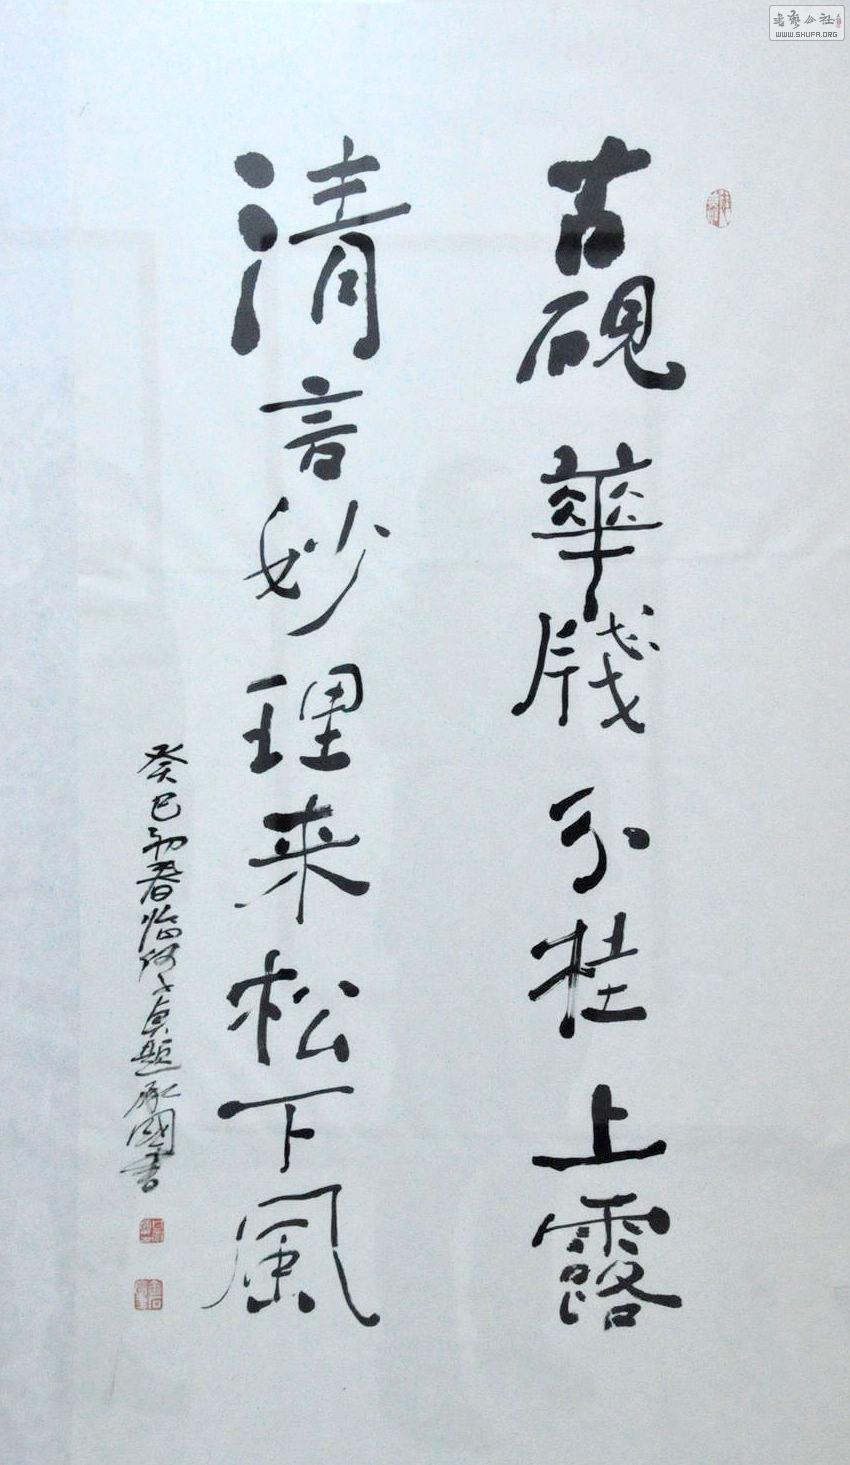 古硯華牋分桂上露
清言妙理来松下風
癸巳初春临何子貞題承國書
书艺公社
WWW.SHUFA.ORG